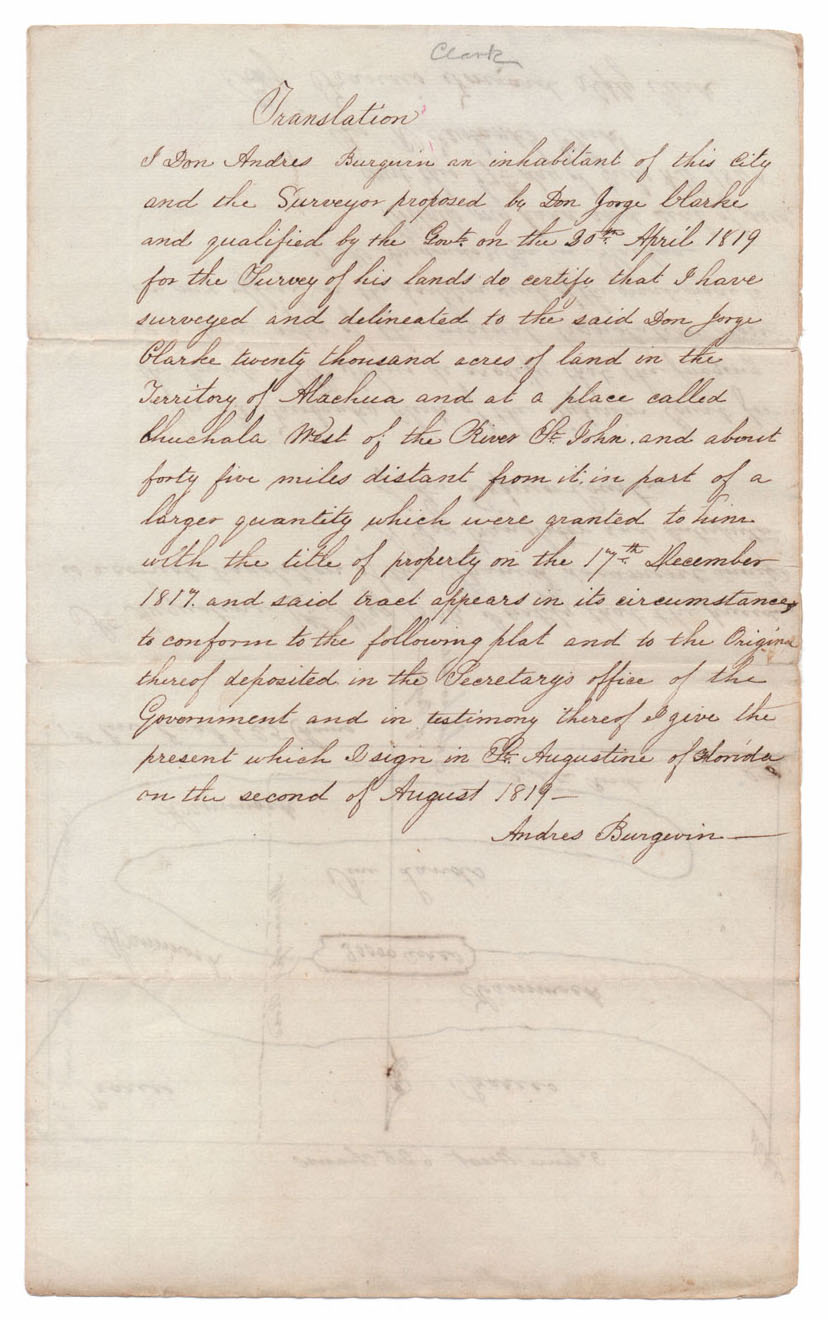 Clark
Translation
I Don Andres Burguin an inhabitant of this City
and the Surveyor proposed by Don Jorge Clarke
and qualified by the Govt. on the 30th. April 1819
for the Survey of his lands do certify that I have
surveyed and delineated to the said Don Jorge
Clarke twenty thousand acres of land in the
Territory of Alachua and at a place called
Chuchala West of the River St. John. and about
forty five miles distant from it. in part of a
larger quantity which were granted to him
with the title of property on the 17th. December
1817. and said tract appears in its circumstances
to conform to the following plat and to the Original
thereof deposited in the Secretary's office of the
Government and in testimony thereof I give the
present which I sign in St. Augustine of Florida
on the second of August 1819—
Andres Burgevin—